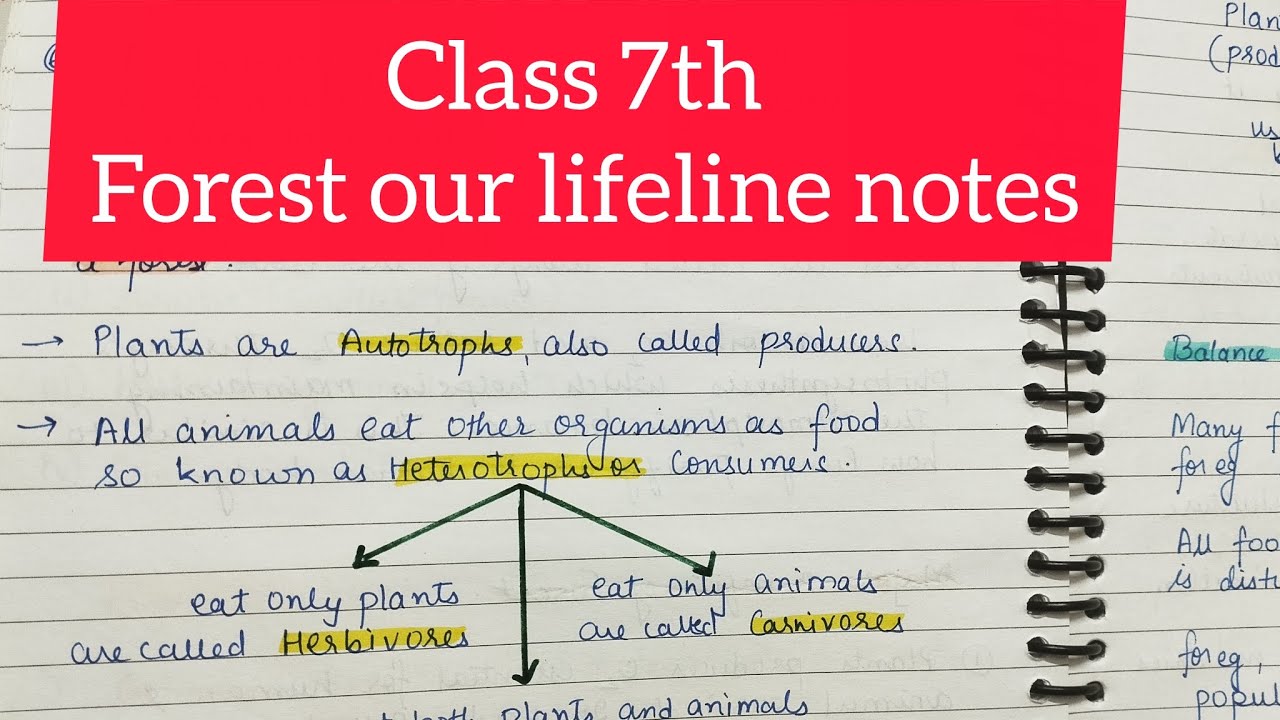 Class 7th
Forest our lifeline notes
a forest.
→ Plants are Autotrophs, also called producers.
→ All animals eat other organisms as food
so known as Heterotrophs or Consumers.
eat only plants
are called Herbivores
eat only animals
are called Carnivores
both plants and animals
Plan
(prod
us
Balance
Many f
for eg
All foo
is distu
for eg,
popul